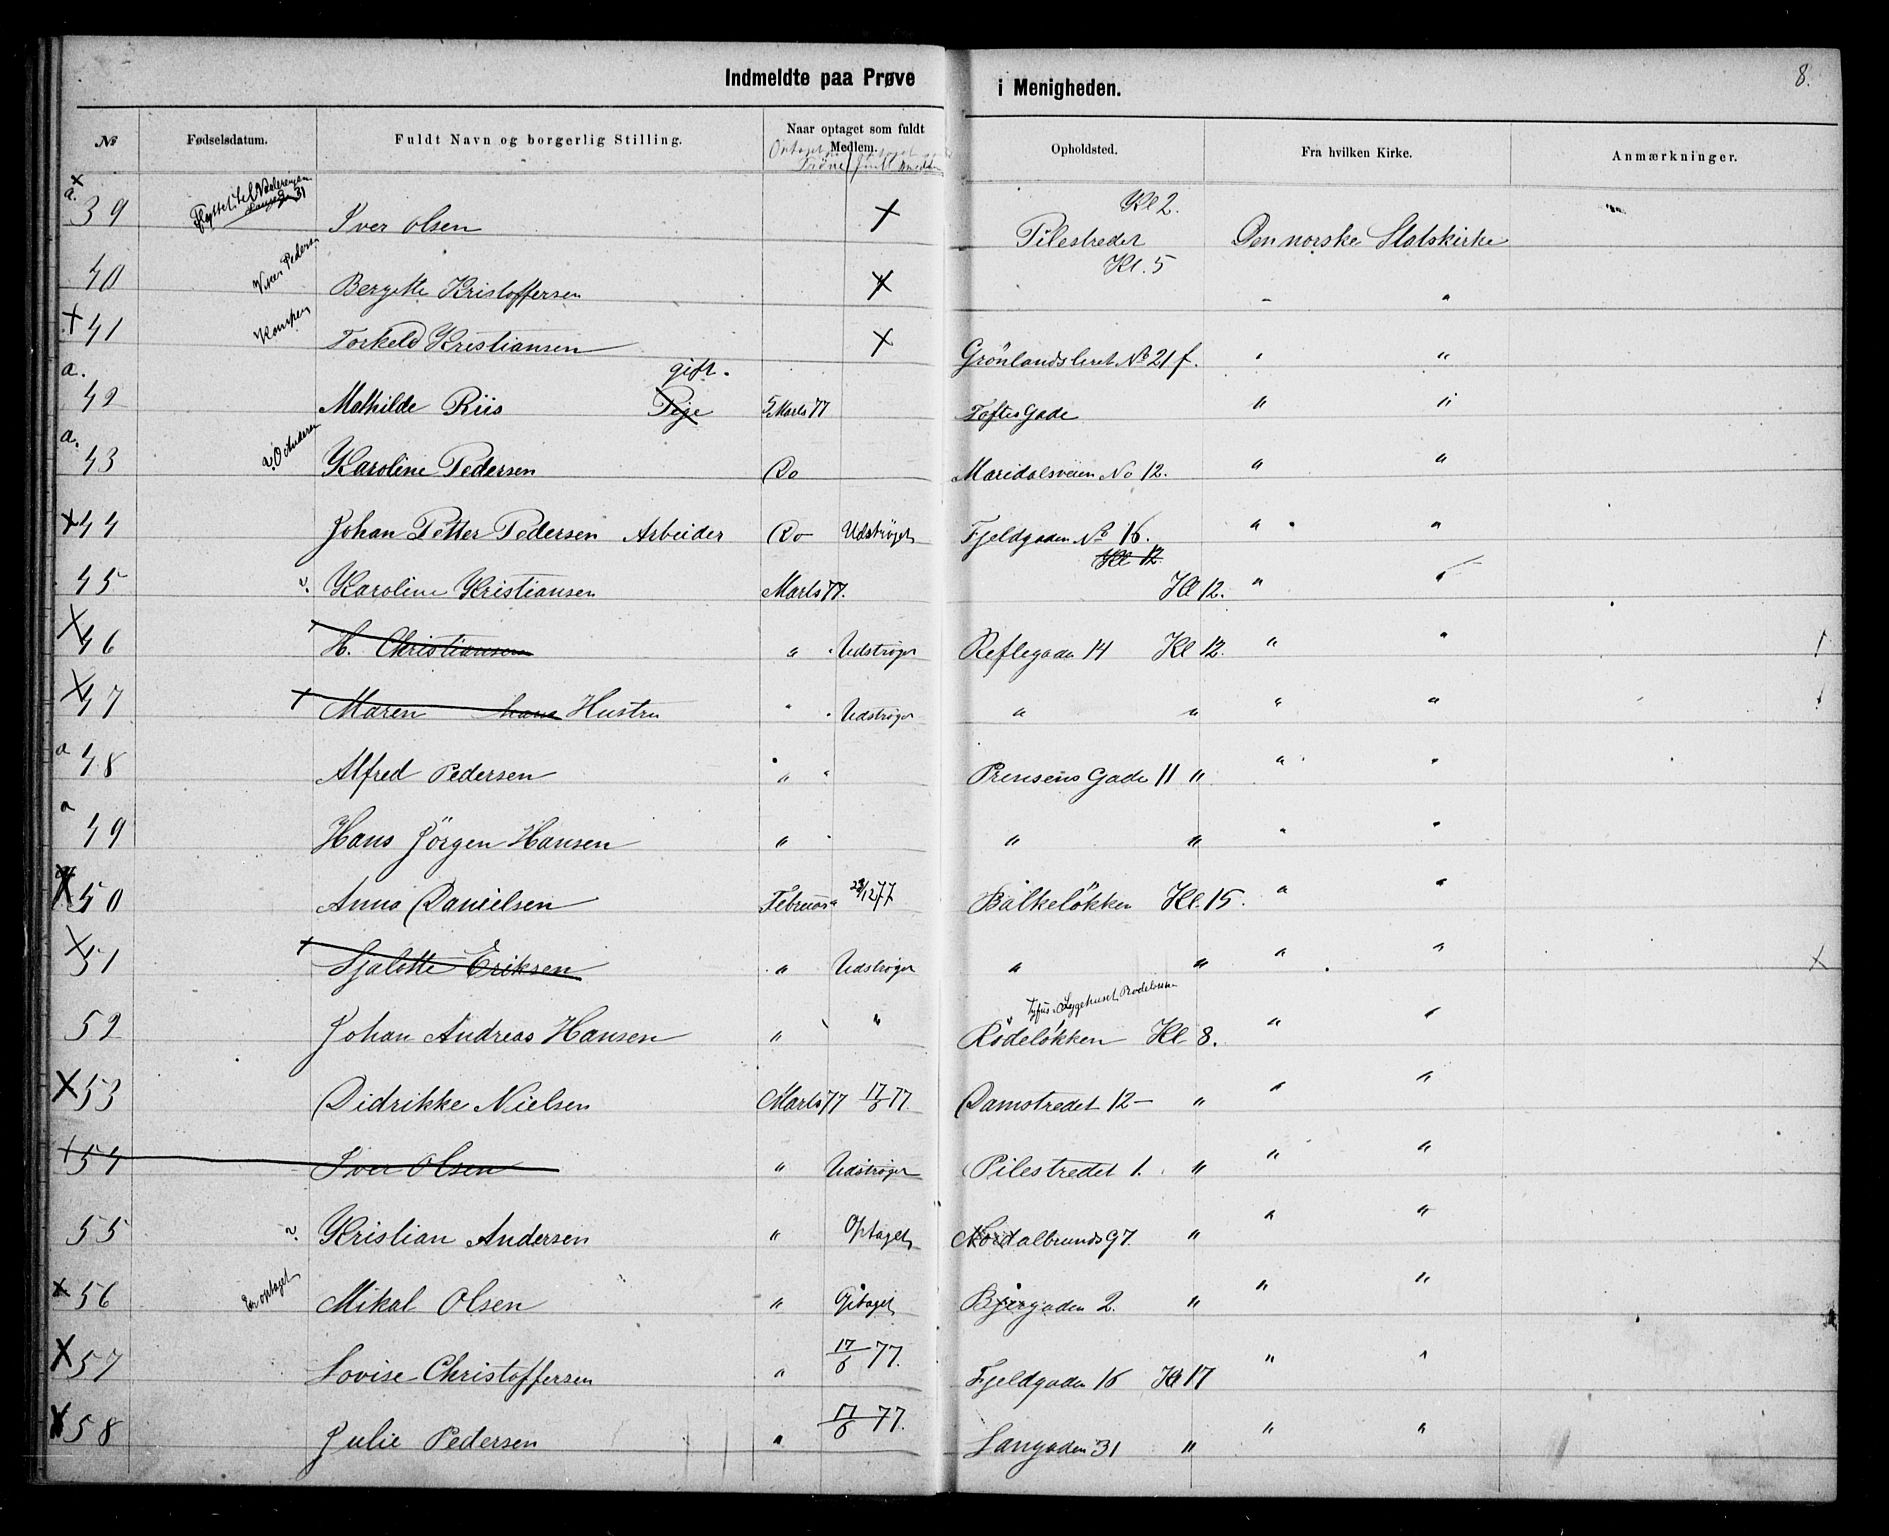 Indmeldte paa Prøve i Menigheden. 8.
№ Fødselsdatum. Fuldt Navn og borgerlig Stilling. Naar optaget som fuldt Medlem. Opholdsted. Fra hvilken Kirke. Anmærkninger.
Prøve
Kl 2.
a. x 39 Flyttet til 31 Iver Olsen x Pilestredet Den norske Statskirke
Kl. 5
40 Pedersen Bergitte Kristoffersen x - "
x 41 Torkeld Kristiansen x Grönlandsleret No 21 f. " "
gift.
a. 42 Mathilde Riis Pige 5 Marts 77 Toftes Gade " "
a. 43 Karoline Pedersen Do Maridalsveien No 12. " "
x 44 Johan Petter Pedersen Arbeider Do Udströget Fjeldgaden No 16. " "
Kl 12.
45 Karoline Kristiansen Marts 77. Kl 12. " "
x 46 H. Christiansen " Udströget 14 Kl 12. " "
x 47 Maren hans Hustru " Udströget " " " "
a 48 Alfred Pedersen " " Prensens Gade 11 " " "
a 49 Hans Jörgen Hansen " " " " "
x 50 Anna Danielsen Februar 28/12 77 Balkelökken Kl. 15. " "
x 51 Sjalotte Eriksen " Udströget " " " " x
Tyfus Sygehuset
52 Johan Andreas Hansen " " Rodelökken Kl 8. " "
x 53 Didrikke Nielsen Marts 77 17/6 77. Damstredet 12 - " " "
x 54 Iver Olsen " Udströget Pilestredet 1. " " "
55 Kristian Andersen " Optaget 97. " " "
x 56 Er optaget Mikal Olsen " Optaget 2. " " "
x 57 Lovise Christoffersen " 17/6 77. Fjeldgaden 16 Kl 17 " "
x 58 Julie Pedersen " 17/6 77. Langaden 31 " " "